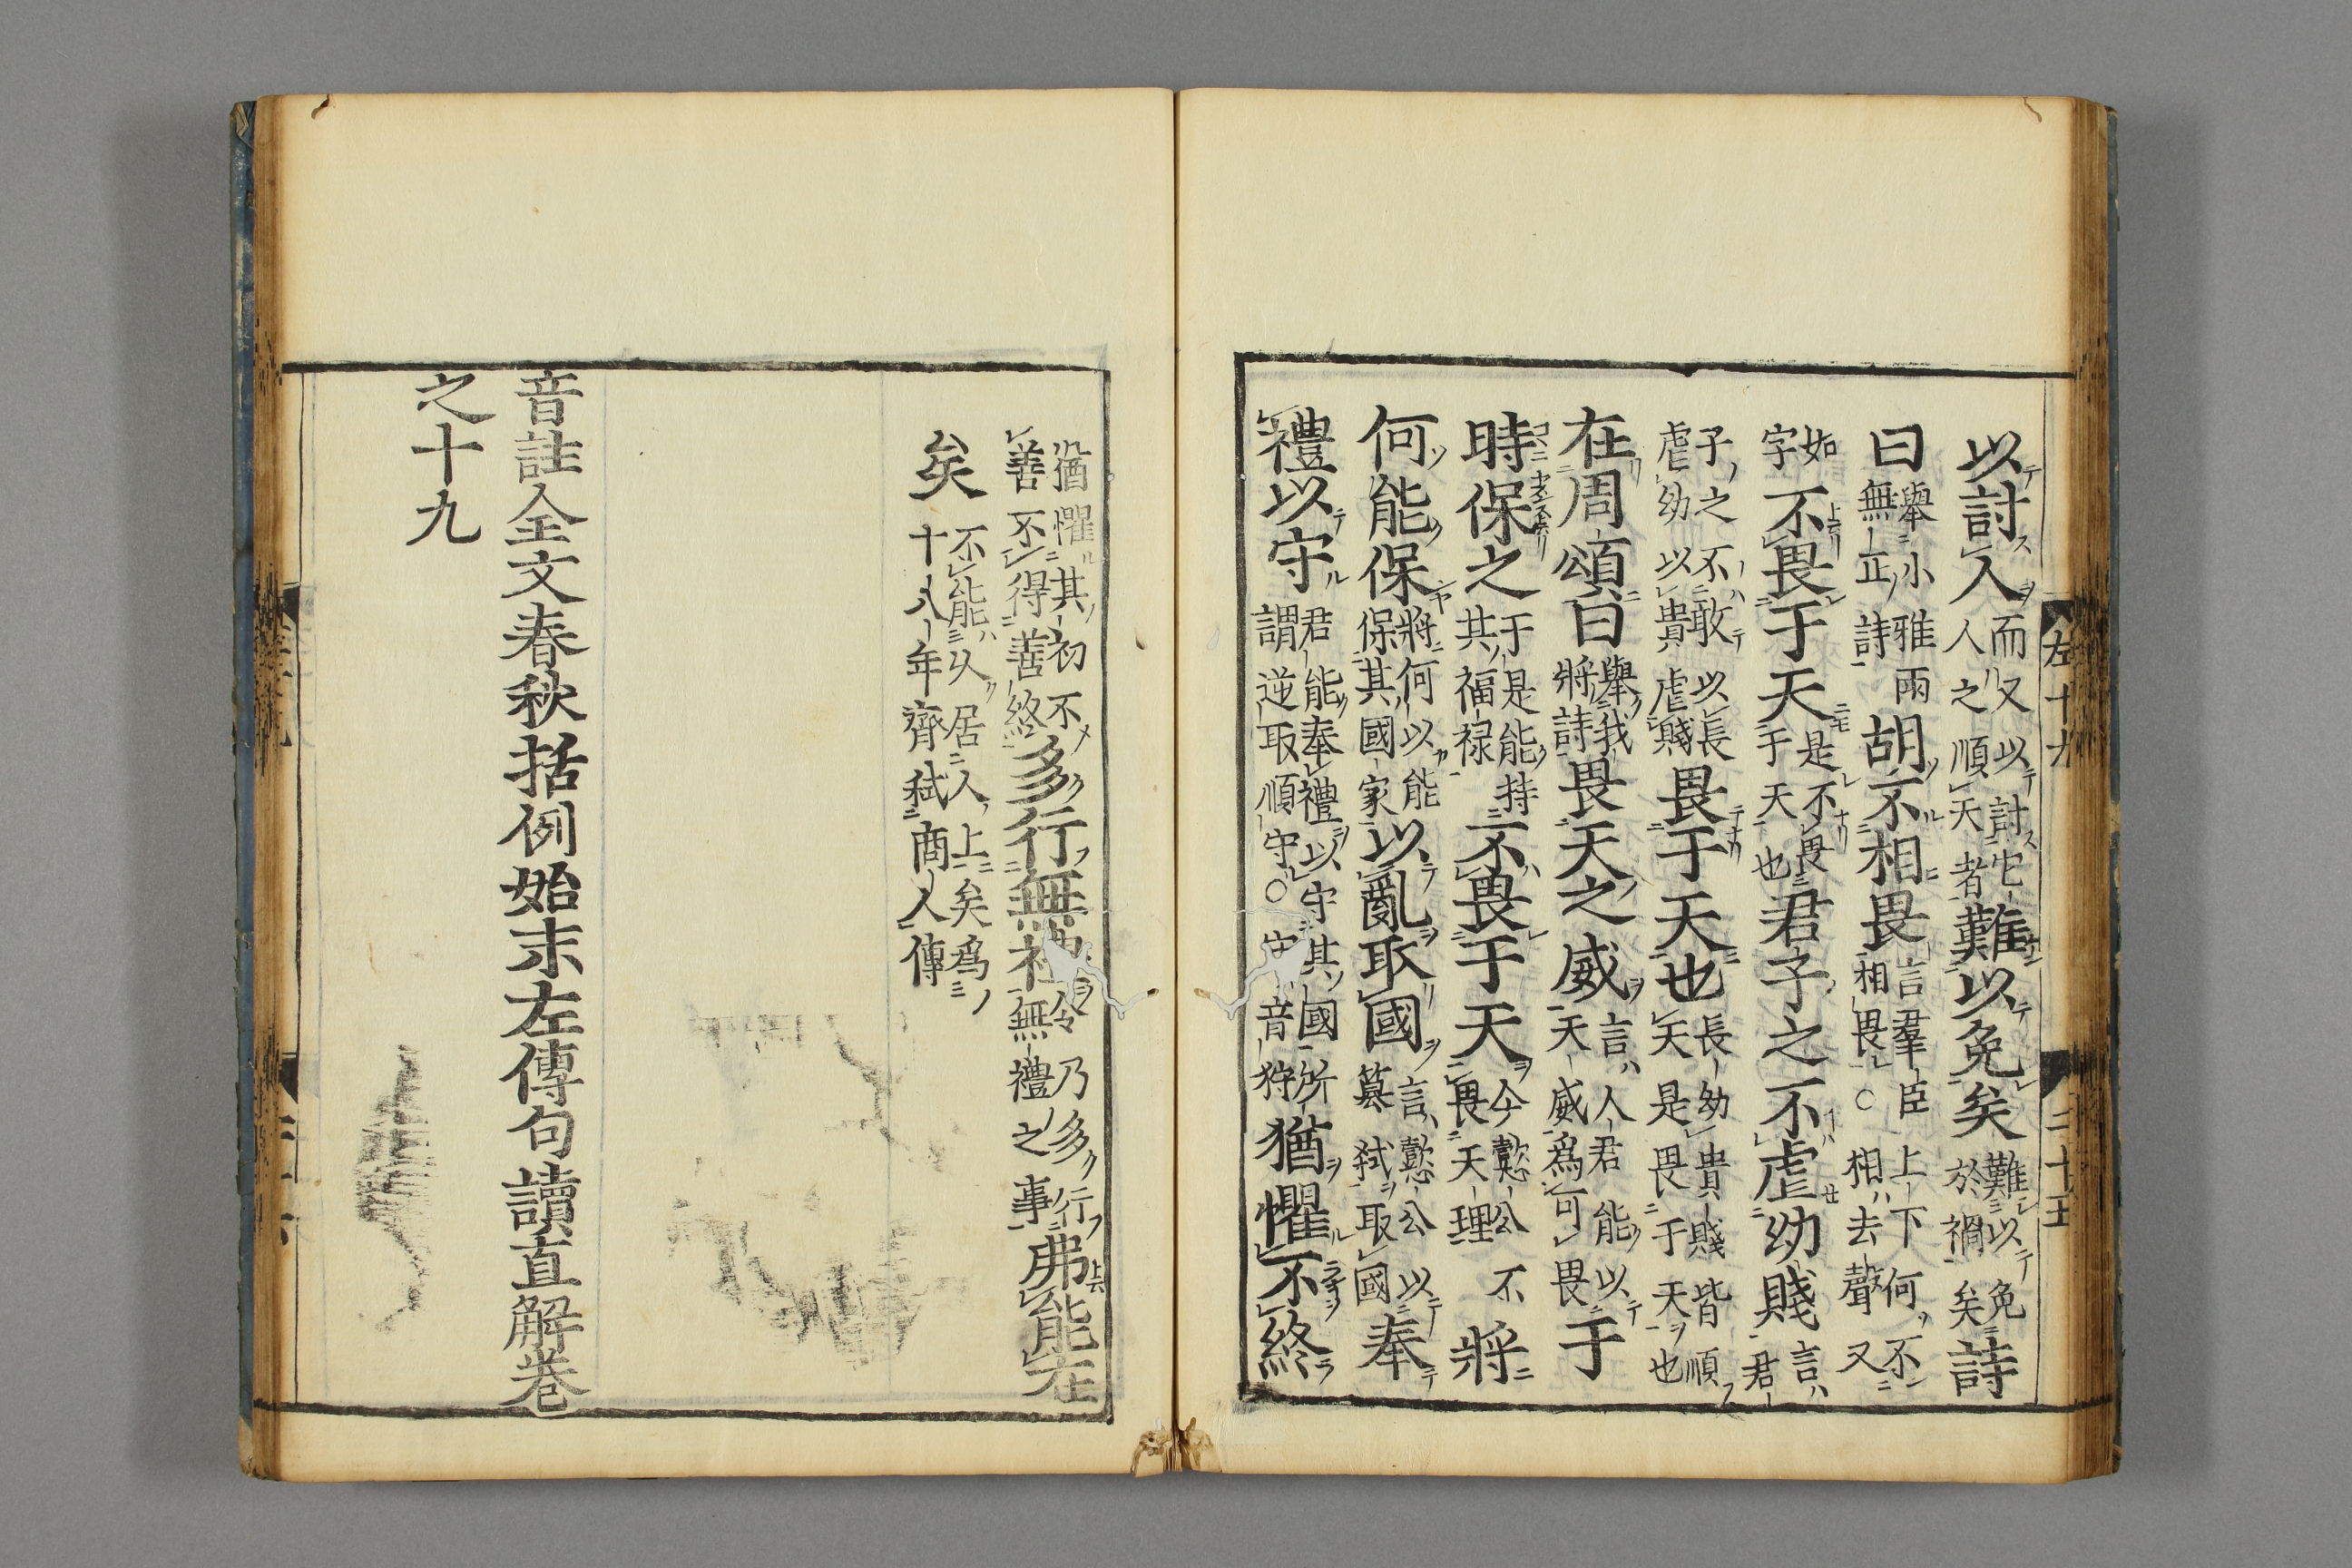 以討人而又以討它人之順天者難以免矣難以免於禍矣詩
曰舉小雅雨無正詩胡不相畏言羣臣相畏○上下何不相去聲又
如字不畏于天是不畏于天也君子之不虐幼賤言君
子之不敢以長虐幼以貴虐賤畏于天也長幼貴賤皆順天是畏于天也
在周頌曰舉我將詩畏天之威言人君能以天威爲可畏于
時保之于是能持其福祿不畏于天今懿公不畏天理將
何能保將何以能保其國家以亂取國言懿公以篡弑取國奉
禮以守君能奉禮以守其國所謂逆取順守○守音狩猶懼不終
猶懼其初不善不得善終多行無禮今乃多行無禮之事弗能在
矣不能久居人上矣爲十八年齊弑商人傳
音註全文春秋括例始末左傳句讀直解卷
之十九
左十九
二十五